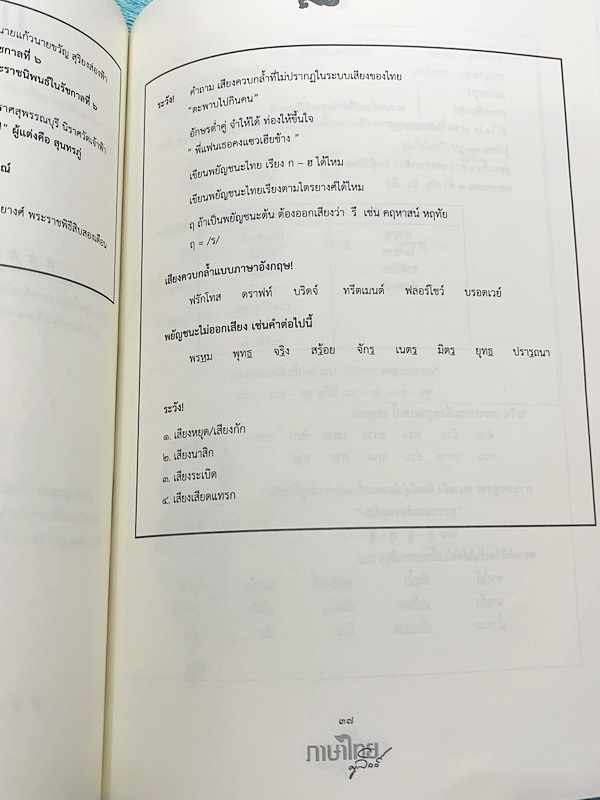 นายแก้วนายขวัญ สุริยงส่องฟ้า
ชกาลที่ ๖
ะราชนิพนธ์ในรัชกาลที่ ๖
ราศสุพรรณบุรี นิราศวัดเจ้าฟ้า
ู่” ผู้แต่งคือ สุนทรภู่
ณ์
ยางศ์ พระราชพิธีสิบสองเดือน
ระวัง! คำถาม เสียงควบกล้ำที่ไม่ปรากฏในระบบเสียงของไทย
“ตะพาบไปกินคน”
อักษรต่ำคู่ จำให้ได้ ท่องให้ขึ้นใจ
“ พี่แฟนเธอคงแซวเฮียช้าง ”
เขียนพยัญชนะไทย เรียง ก – ฮ ได้ไหม
เขียนพยัญชนะไทยเรียงตามไตรยางศ์ได้ไหม
ฤ ถ้าเป็นพยัญชนะต้น ต้องออกเสียงว่า รึ เช่น คฤหาสน์ หฤทัย
ฤ = /ร/
เสียงควบกล้ำแบบภาษาอังกฤษ!
ฟรักโทส ดราฟท์ บริดจ์ ทรีตเมนต์ ฟลอร์โชว์ บรอดเวย์
พยัญชนะไม่ออกเสียง เช่นคำต่อไปนี้
พรหม พุทธ จริง สร้อย จักร เนตร มิตร ยุทธ ปรารถนา
ระวัง!
๑. เสียงหยุด/เสียงกัก
๒. เสียงนาสิก
๓. เสียงระเบิด
๔. เสียงเสียดแทรก
๓๗
ภาษาไทย